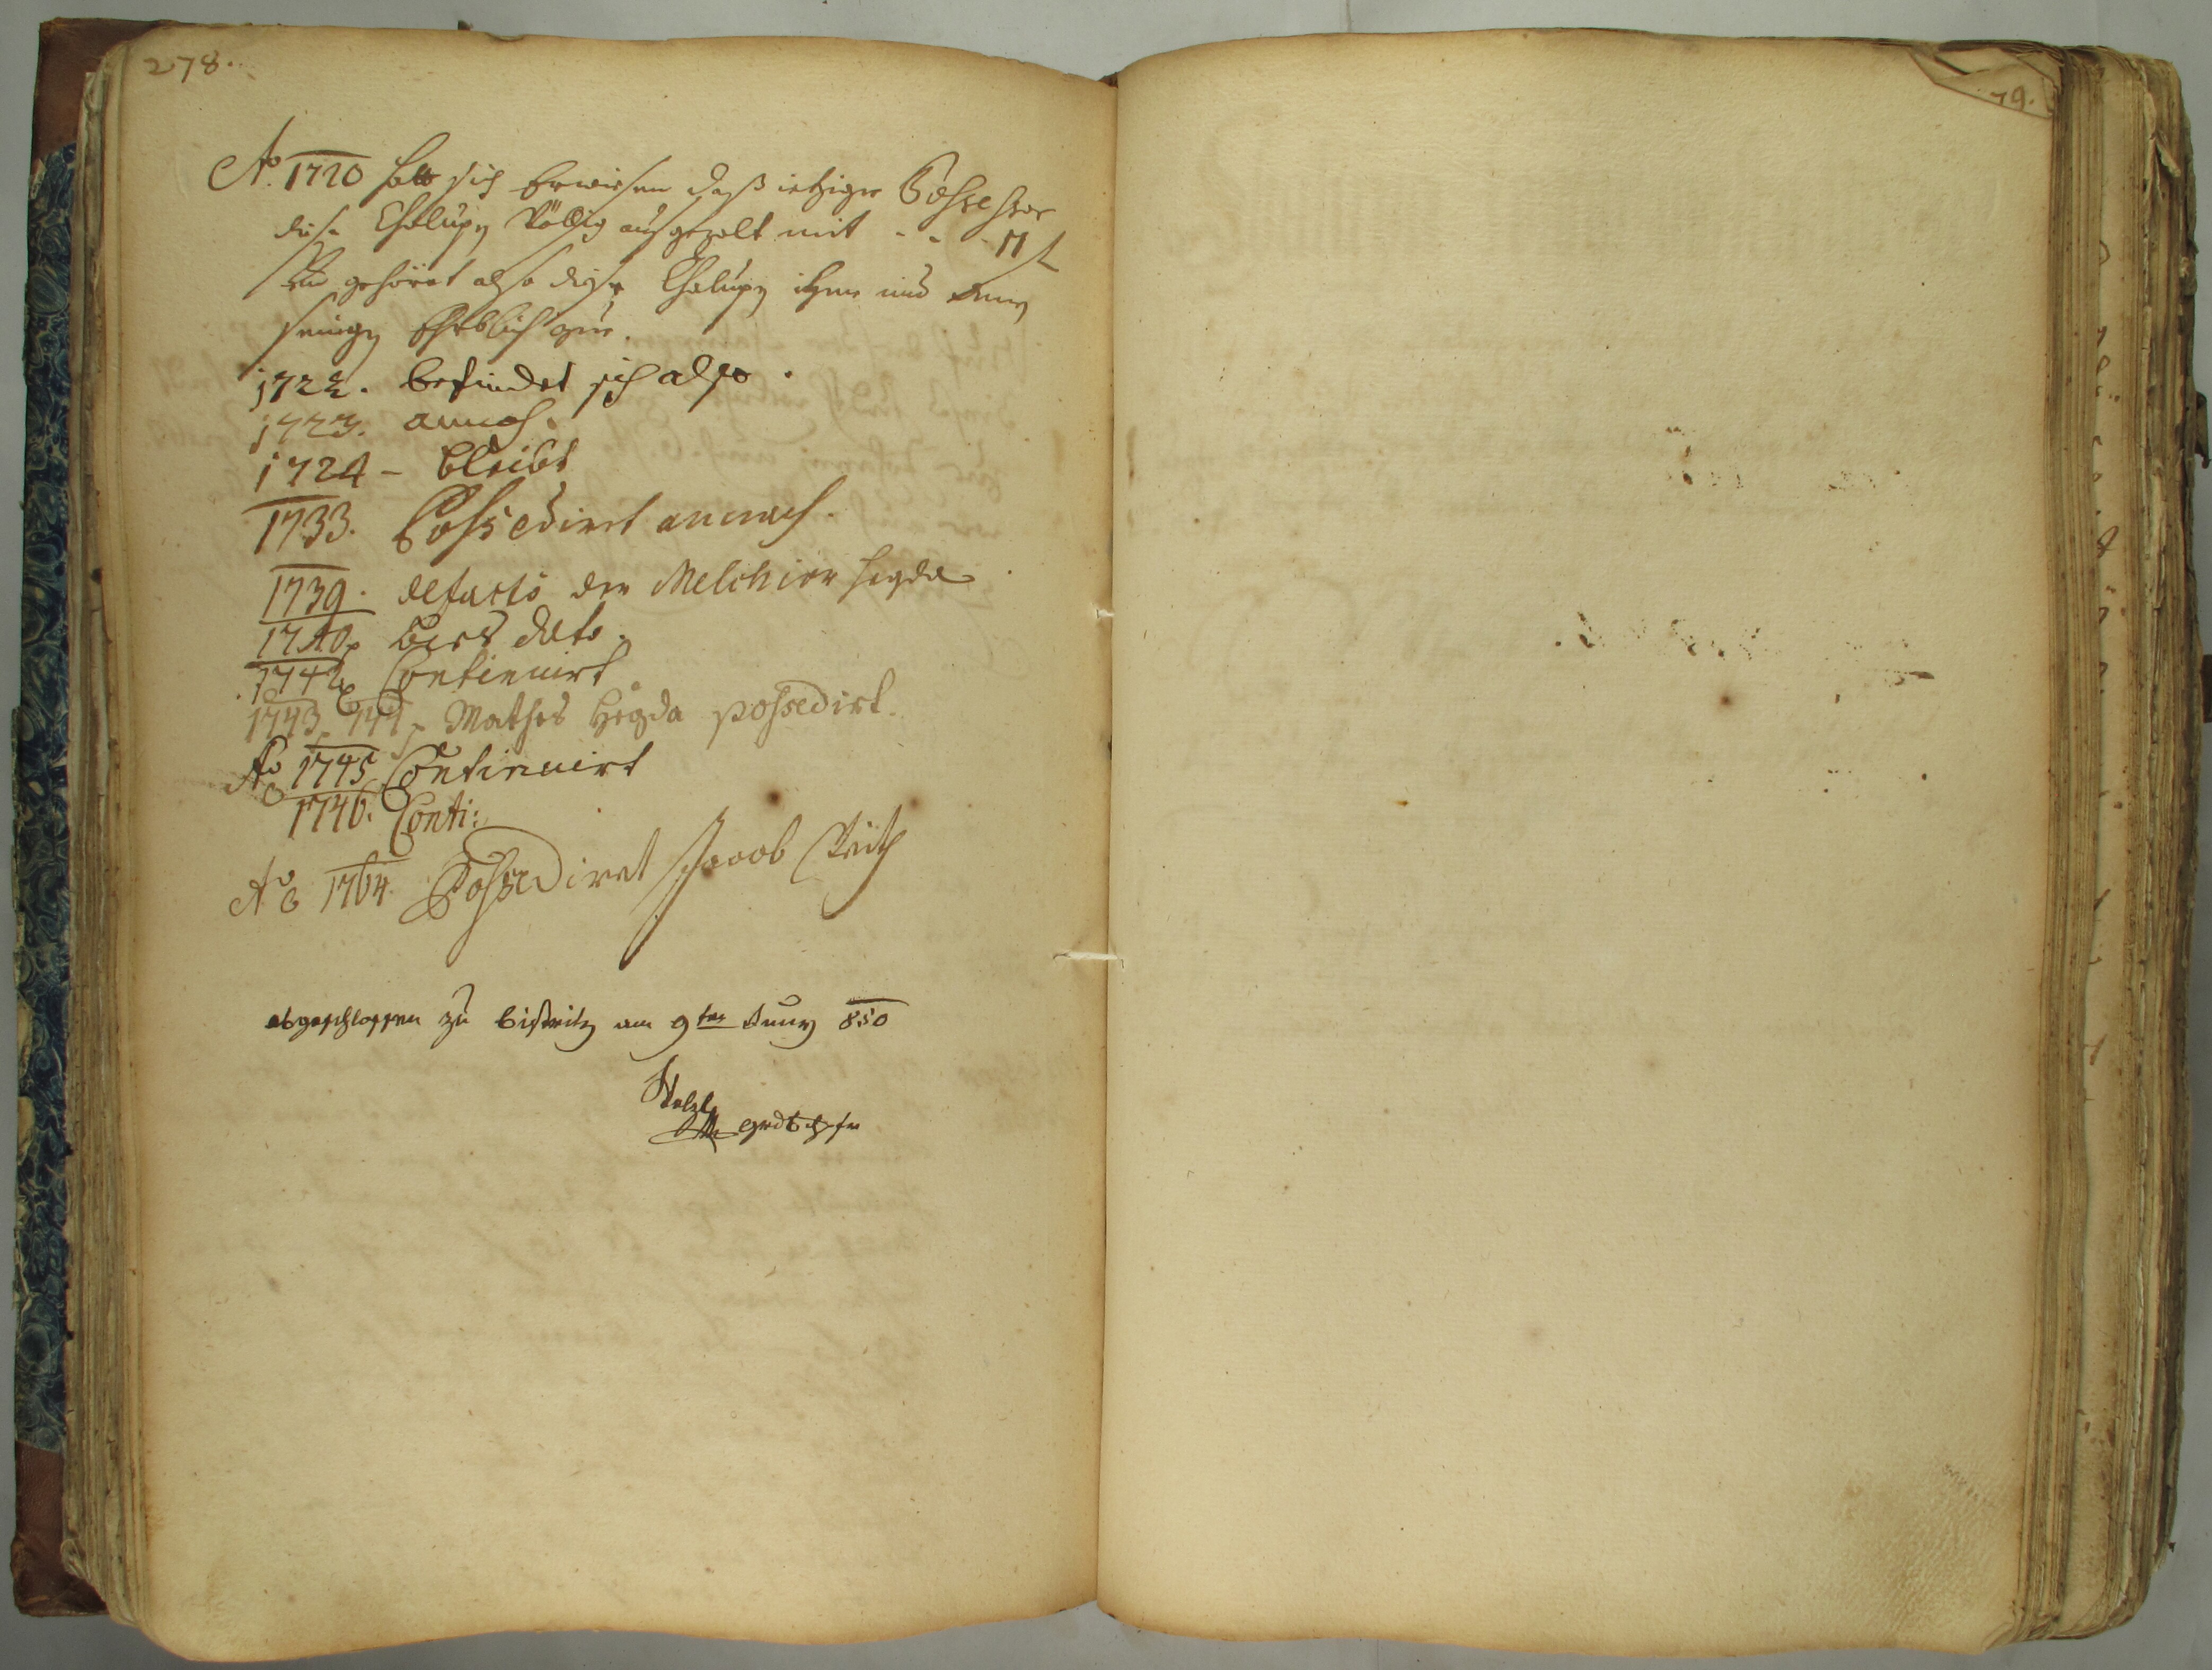 278.
Ao. 1720 hatt sich Erwiesen daß ietziger Possessor
diese Chalupy Völlig außgezalt mit - - - 11 f
gehöret also diese Chalupy ihme und denen
seinigen Ehrblich zue.
1722. befindet sich also.
1723. annoch.
1724 - bleibt
1733. Possediret annoch.
1739. defacto der Melchior Hegda
1740. dito.
1742 Continuirt
1743, 144, Mathes Hegda possedirt.
Ao 1745 Continuirt
Ao 1746. Conti:
Ao 1764. Possediret Jacob
abgeschlossen zu Bistritz am 9ten Juny 850
79.